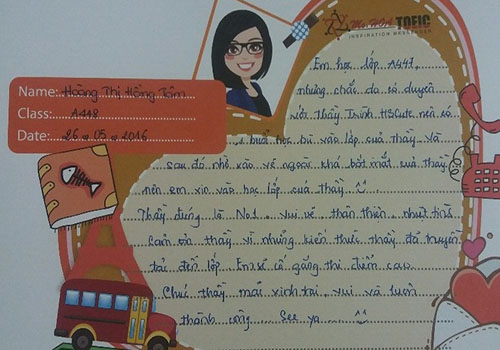 Ms HOA TOEIC
INSPIRATION MESSENGER
Name: Hoàng Thị Hồng Tâm
Class: A448
Date: 26 . 05 . 2016
Em học lớp A447,
nhưng chắc do có duyên
với Thầy Trịnh HSCute nên có
1 buổi học bù vào lớp của thầy. Và
sau đó nhờ vào vẻ ngoài khá bắt mắt của thầy
nên em xin vào học lớp của thầy
Thầy đúng là No1. vui vẻ thân thiện nhiệt tình
Cảm ơn thầy vì những kiến thức thầy đã truyền
tải đến lớp. Em sẽ cố gắng thi điểm cao
Chúc thầy mãi xinh trai, vui và luôn
thành công. See ya